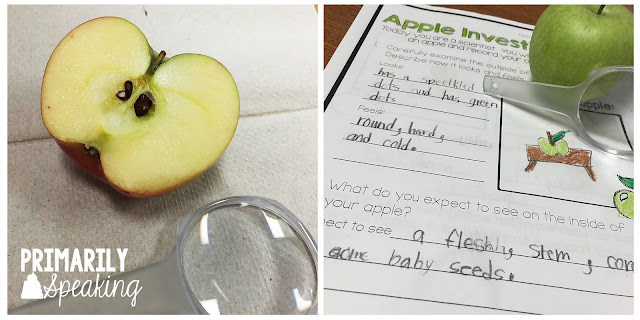 PRIMARILY
Speaking
Apple Invest
Today you are a scientist. You w
an apple and record your
Carefully examine the outside of
Describe how it looks and feels
Looks:
has a spectkled
dots and has green
dots
Feels:
round, hard,
and cold.
apple:
What do you expect to see on the inside of
your apple?
pect to see a fleshh, stem, cor
acme baby seeds.